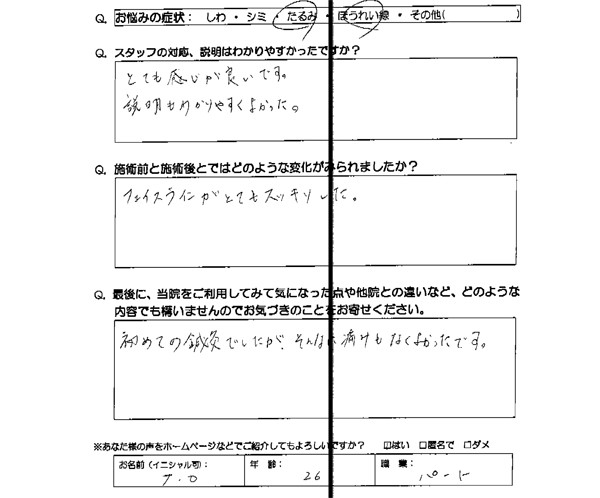 Q. お悩みの症状： しわ ・ シミ ・ たるみ ・ ほうれい線 ・ その他( )
Q. スタッフの対応、説明はわかりやすかったですか？
とても感じが良いです。
説明もわかりやすくよかった。
Q. 施術前と施術後とではどのような変化がみられましたか？
フェイスラインがとてもスッキリした。
Q. 最後に、当院をご利用してみて気になった点や他院との違いなど、どのような
内容でも構いませんのでお気づきのことをお寄せください。
初めての鍼灸でしたが、そんなに痛けもなくよかったです。
※あなた様の声をホームページなどでご紹介してもよろしいですか？ ☑はい □匿名で □ダメ
お名前(イニシャル可)： 年 齢： 職 業：
T.O 26 パート